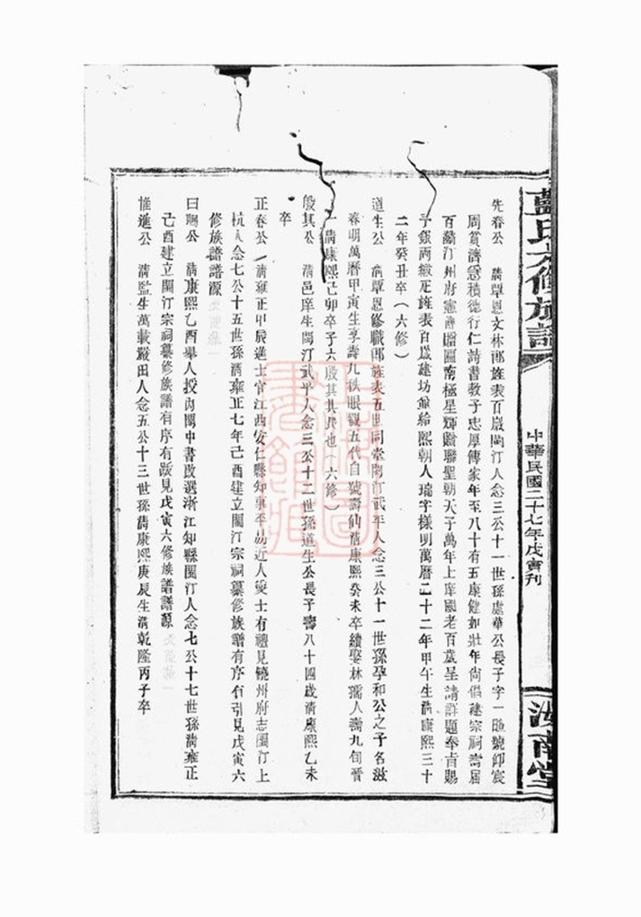 藍氏六修族譜
中華民國二十七年戊寅刊
汝南堂
先春公　清覃恩文林郎旌表百歲閩汀人念三公十一世孫處華公長子字一　號仰宸
周貧濟急積德行仁詩書教子忠厚傳家年至八十有五康健如壯年尚倡建宗祠壽屆
百齡汀州府憲　南極星輝　聯聖朝天子萬年上庠　老百歲呈請詳題奉旨賜
予銀兩緞疋旌表百歲建坊　給熙朝人瑞字樣明萬曆二十二年甲午生清康熙三十
二年癸丑卒（六修）
道生公　清覃恩修職郎旌表五世同堂閩汀武平人念三公十一世孫孕和公之子名滋
春明萬曆甲寅生享壽九秩眼觀五代自號壽仙清康熙癸未卒續娶林孺人壽九旬晉
一清康熙己卯卒子六殷其其長也（六修）
殷其公　清邑庠生閩汀武平人念三公十二世孫道生公長子壽八十四歲清康熙乙未
卒
正春公　清雍正甲辰進士官江西安仁縣知事平易近人愛士有禮見饒州府志閩汀上
杭人念七公十五世孫清雍正七年己酉建立閩汀宗祠纂修族譜有序有引見戊寅六
修族譜譜源
曰　公　清康熙乙酉舉人授內閣中書改選浙江知縣閩汀人念七公十七世孫清雍正
己酉建立閩汀宗祠纂修族譜有序有跋見戊寅六修族譜譜源
惟進公　清監生萬載嚴田人念五公十三世孫清康熙庚辰生清乾隆丙子卒